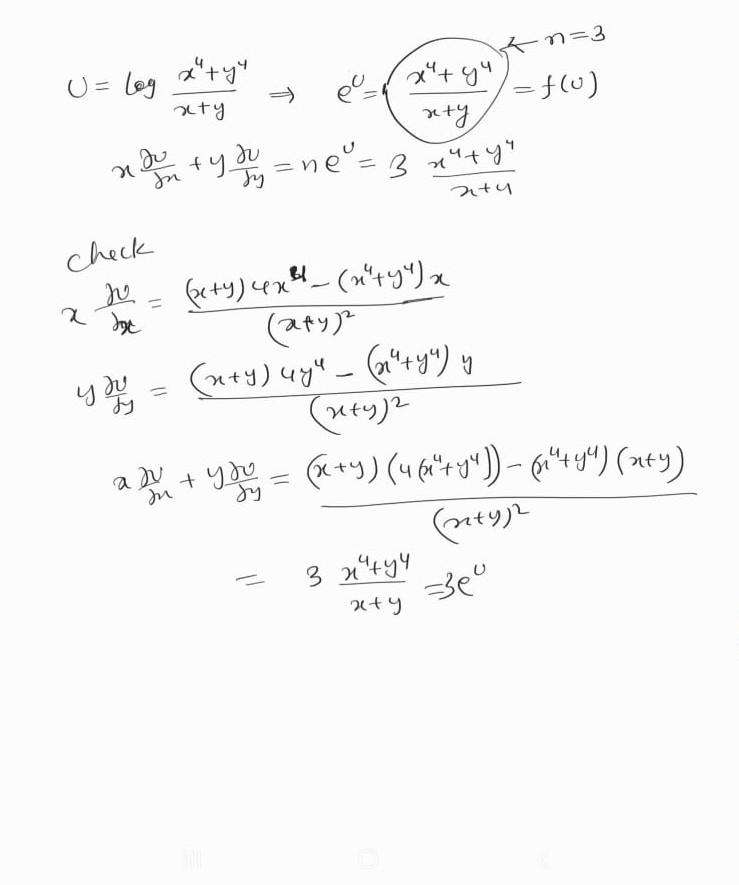 U = log (x⁴+y⁴)/(x+y) ⇒ e^U = (x⁴+y⁴)/(x+y) = f(U) ← n=3
x ∂U/∂x + y ∂U/∂y = n e^U = 3 (x⁴+y⁴)/(x+y)
check
x ∂U/∂x = ((x+y) 4x⁴ − (x⁴+y⁴) x)/(x+y)²
y ∂U/∂y = ((x+y) 4y⁴ − (x⁴+y⁴) y)/(x+y)²
x ∂U/∂x + y ∂U/∂y = ((x+y) (4(x⁴+y⁴)) − (x⁴+y⁴) (x+y))/(x+y)²
= 3 (x⁴+y⁴)/(x+y) = 3e^U